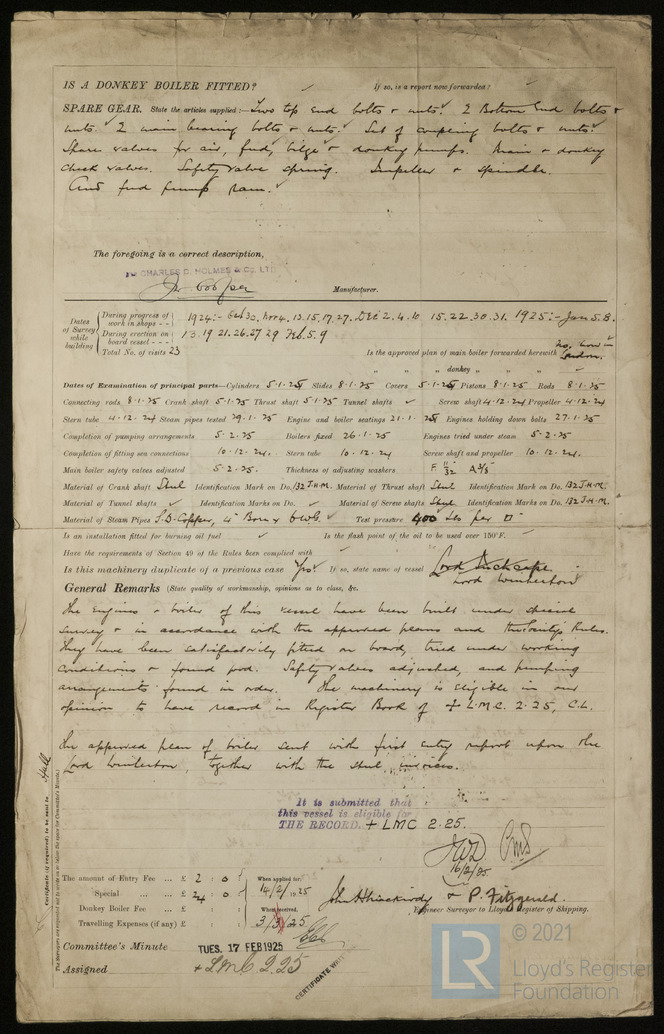 IS A DONKEY BOILER FITTED? ✓ If so, is a report now forwarded? ✓
SPARE GEAR. State the articles supplied:— Two top end bolts & nuts. 2 Bottom End bolts &
nuts. 2 main bearing bolts & nuts. Set of coupling bolts & nuts.
Spare valves for air, feed, bilge & donkey pumps. Main & donkey
check valves. Safety valve spring. Impeller & spindle.
And feed pump ram.
The foregoing is a correct description,
CHARLES D. HOLMES & CO. LTD
Manufacturer.
Dates of Survey while building
During progress of work in shops - - 1924:- Oct 30, Nov 4. 13. 15. 17. 27. Dec 2. 4. 10. 15. 22. 30. 31. 1925:- Jan 5. 8.
During erection on board vessel - - - 13. 19. 21. 26. 27. 29. Feb. 5. 9
Total No. of visits 23
Is the approved plan of main boiler forwarded herewith no, now in London.
" " " donkey " " "
Dates of Examination of principal parts—Cylinders 5-1-25 Slides 8-1-25 Covers 5-1-25 Pistons 8-1-25 Rods 8-1-25
Connecting rods 8-1-25 Crank shaft 5-1-25 Thrust shaft 5-1-25 Tunnel shafts ✓ Screw shaft 4-12-24 Propeller 4-12-24
Stern tube 4-12-24 Steam pipes tested 29-1-25 Engine and boiler seatings 21-1-25 Engines holding down bolts 27-1-25
Completion of pumping arrangements 5-2-25 Boilers fixed 26-1-25 Engines tried under steam 5-2-25
Completion of fitting sea connections 10-12-24. Stern tube 10-12-24. Screw shaft and propeller 10-12-24.
Main boiler safety valves adjusted 5-2-25. Thickness of adjusting washers F 11/32 A 3/8
Material of Crank shaft Steel Identification Mark on Do. 132 J.H.M. Material of Thrust shaft Steel Identification Mark on Do. 132 J.H.M.
Material of Tunnel shafts ✓ Identification Marks on Do. ✓ Material of Screw shafts Steel Identification Marks on Do. 132 J.H.M.
Material of Steam Pipes S.D. Copper, 4" Bore x 6 W.G. ✓ Test pressure 400 lbs per □"
Is an installation fitted for burning oil fuel ✓ Is the flash point of the oil to be used over 150°F. ✓
Have the requirements of Section 49 of the Rules been complied with ✓
Is this machinery duplicate of a previous case Yes If so, state name of vessel Lord Inchcape
Lord Wimborne
General Remarks (State quality of workmanship, opinions as to class, &c.
The Engines & boiler of this vessel have been built under special
survey & in accordance with the approved plans and the Society's Rules.
They have been satisfactorily fitted on board, tried under working
conditions & found good. Safety valves adjusted, and pumping
arrangements found in order. The machinery is eligible in our
opinion to have record in Register Book of + L.M.C. 2.25, C.L.
The approved plan of boiler sent with first entry report upon the
Lord Wimborne, together with the steel invoices.
It is submitted that
this vessel is eligible for
THE RECORD. + LMC 2.25.
16/2/25
Certificate (if required) to be sent to Hull
The amount of Entry Fee ... £ 2 : 0 : When applied for.
Special ... ... £ 24 : 0 : 14/2/1925
Donkey Boiler Fee ... £ : : When received.
Travelling Expenses (if any) £ : : 3/3/25
& P. Fitzgerald.
Engineer Surveyor to Lloyd's Register of Shipping.
Committee's Minute TUES. 17 FEB 1925
Assigned + L.M.C 2.25
© 2021
LR
Lloyd's Register
Foundation